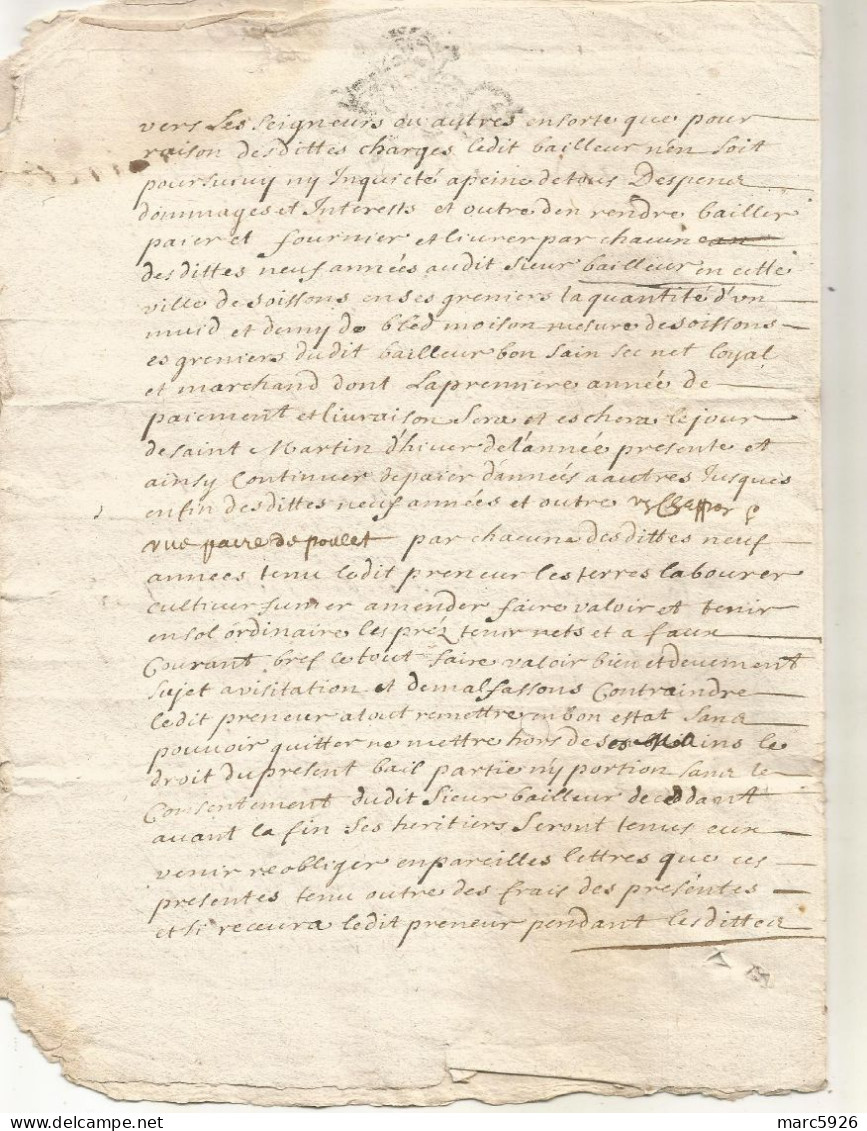 vers les seigneurs ou autres ensorte que pour
raison desdittes charges ledit bailleur nen soit
poursuivy ny Inquieté apeine detous Despens
dommages et Interests et outre den rendre bailler
paier et fournier et livrer par chacune
desdittes neuf années audit sieur bailleur en cette
ville de soissons en ses greniers la quantité d'un
muid et demy de bled moison mesure de soissons
es greniers dudit bailleur bon sain sec net loyal
et marchand dont la premiere année de
paiement et livraison sera et eschera le jour
de saint Martin d'hiver de l'année presente et
ainsy Continuer depaier dannées a autres Jusques
en fin desdittes neuf années et outre
une paire de poulet par chacune desdittes neuf
années tenu ledit preneur les terres labourer
cultiver fumer amender faire valoir et tenir
en sol ordinaire les préz tenir nets et a faux
Courant bref le tout faire valoir bien et deuement
sujet a visitation et demalfassons Contraindre
ledit preneur a tout remettre en bon estat sans
pouvoir quitter ne mettre hors de ses mains le
droit du present bail partie n'y portion sans le
Consentement dudit sieur bailleur deceddant
avant la fin ses heritiers seront tenus eux
venir reobliger en pareilles lettres que ces
presentes tenu outre des frais des presentes
et si recevra ledit preneur pendant lesdittes
marc5926